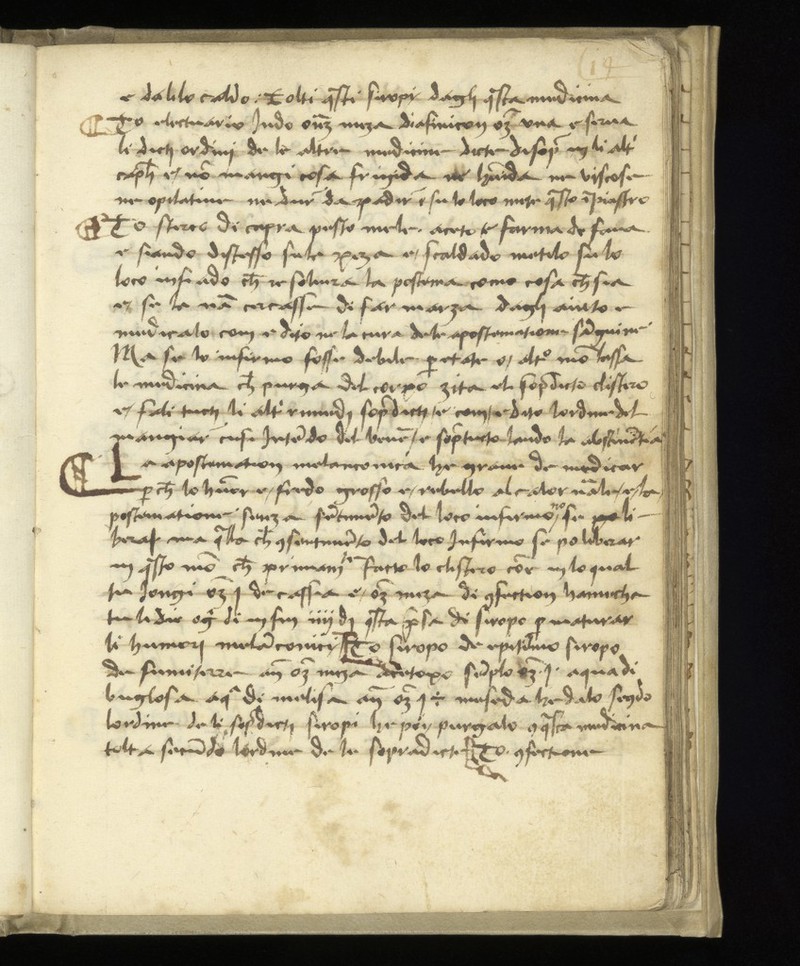 14
e dalilo caldo. Tolti q̄sti siropi dagli q̄sta medicina
To electuario Indo onz̄ meza diafinicon oz̄ una e serva
li dicti ordini de le altre medicine dicte disop̄ ī gli alt'
e nō mangi cosa frigida ne hūida ne viscose
ne opilative ne dur̄ da padir e su lo loco mete q̄sto īpiastro
To sterco di capra pesto mele aceto e farina de fava
e siando distesso su la peza e scaldado metilo su lo
loco infiado ch̄ resolvera la postema como cosa ch̄ sia
e se la nā cercasse di far marza dagli aiuto e
medicalo com e dito ne la cura dele apostematione sāguine
Ma se lo infirmo fosse debele p̄ etate o alt° mō lassa
le medicina ch̄ purga del corpo zita el sop̄dicto clistero
e fali tucti li alt' remedi sop̄dicti e com e dito lordine del
mangiar cusi Intēdo del bever̄ e sop̄tucto lando la abstinētia
La apostemation melanconica he grave de medicar
p̄ch̄ lo hūor e fredo grosso e rebello al calor nāle e la
postematione senza sētimēto del loco infirmo nō se po li
berar ma q̄lla ch̄ ꝯ sentimēto del loco Infirmo se po liberar
in q̄sto mō ch̄ primamēte facto lo clistero cōe in lo qual
tu zongi oz̄ j de cassia e oz̄ meza di ꝯfection hamech
tu li die oḡ di in fin iiij dj q̄sta p̄sa di siropo p maturar
li humori melāconici To siropo de epitimo siropo
de fumiterre an̄ oz̄ meza acetoxo sēplo oz̄ j aqua di
buglosa aq̄ di melisa an̄ oz̄ j meseda he dalo segōdo
lordine de li sop̄dicti siropi he per purgalo ꝯ q̄sta medicina
tolta secūdo lordine de le sopradicte To ꝯfectione